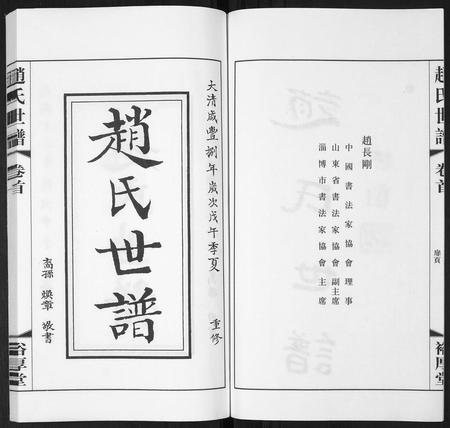 趙氏世譜
卷首
扉頁
裕厚堂
趙長剛
中國書法家協會理事
山東省書法家協會副主席
淄博市書法家協會主席
大清咸豐捌年歲次戊午季夏
重修
趙氏世譜
裔孫 煥章 敬書
趙氏世譜
卷首
裕厚堂